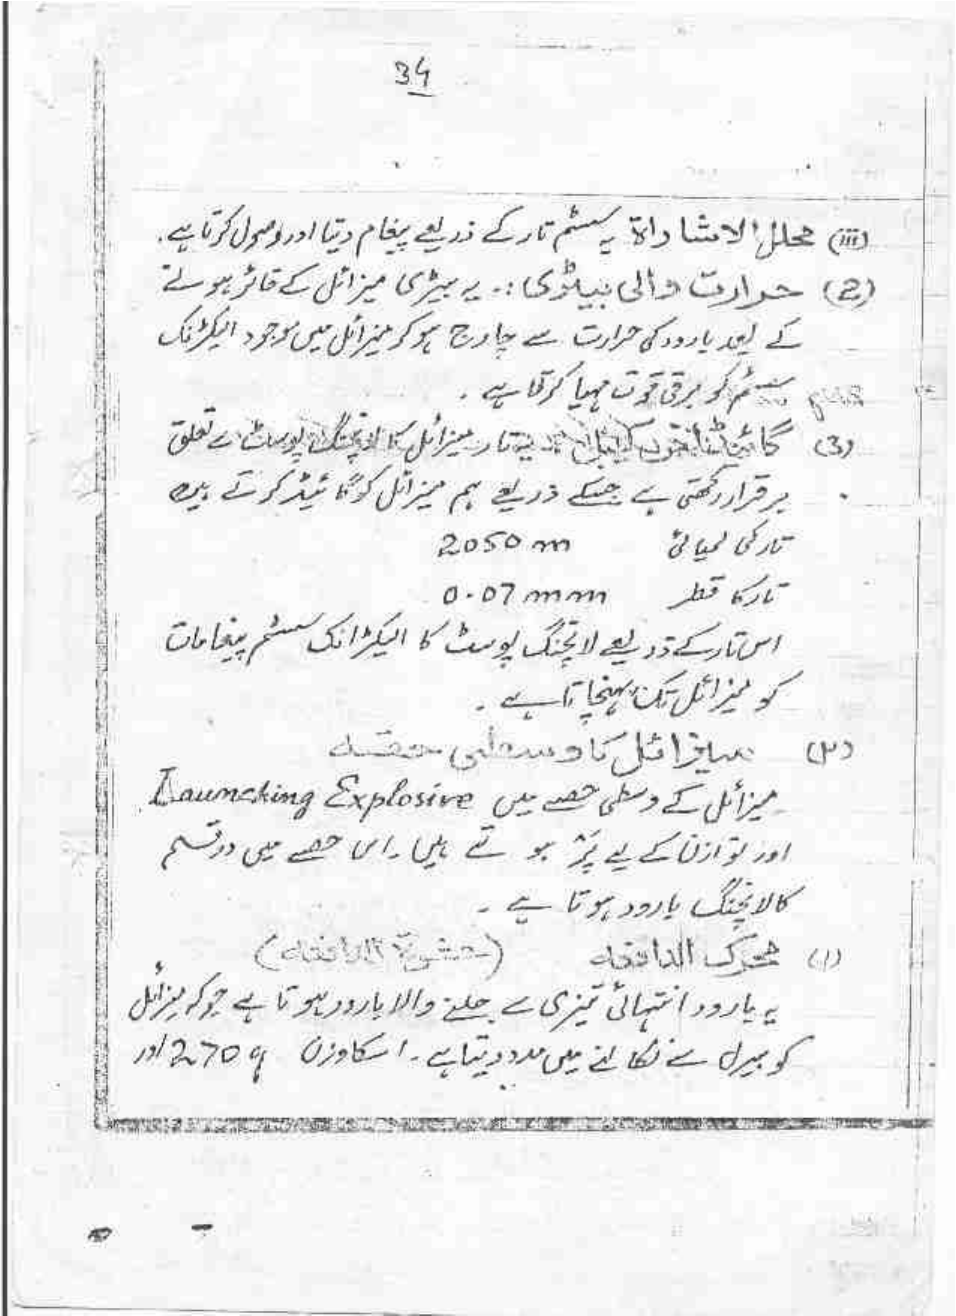 34
(iii) محلل الاشاراۃ یہ سسٹم تار کے ذریعے پیغام دیتا اور وصول کرتا ہے۔
(2) حرارت والی بیٹری :۔ یہ بیٹری میزائل کے فائر ہونے
کے بعد بارود کی حرارت سے چارج ہو کر میزائل میں موجود الیکٹرنک
سسٹم کو برقی قوت مہیا کرتا ہے ۔
(3) گائیڈنس کیبل یہ تار میزائل کا لانچنگ پوسٹ سے تعلق
برقرار رکھتی ہے جسکے ذریعے ہم میزائل کو گائیڈ کرتے ہیں
تار کی لمبائی 2050 m
تار کا قطر 0.07 mm
اس تار کے ذریعے لانچنگ پوسٹ کا الیکٹرانک سسٹم پیغامات
کو میزائل تک پہنچاتا ہے ۔
(۲) میزائل کا وسطی حصہ
میزائل کے وسطی حصے میں Launching Explosive
اور توازن کے لیے پَر ہوتے ہیں ۔ اس حصے میں دو قسم
کا لانچنگ بارود ہوتا ہے ۔
(۱) محرک الدافعہ (حشوۃ الدافعہ)
یہ بارود انتہائی تیزی سے جلنے والا بارود ہوتا ہے جو کہ میزائل
کو بیرل سے نکالنے میں مدد دیتا ہے ۔ اسکا وزن 270 g اور